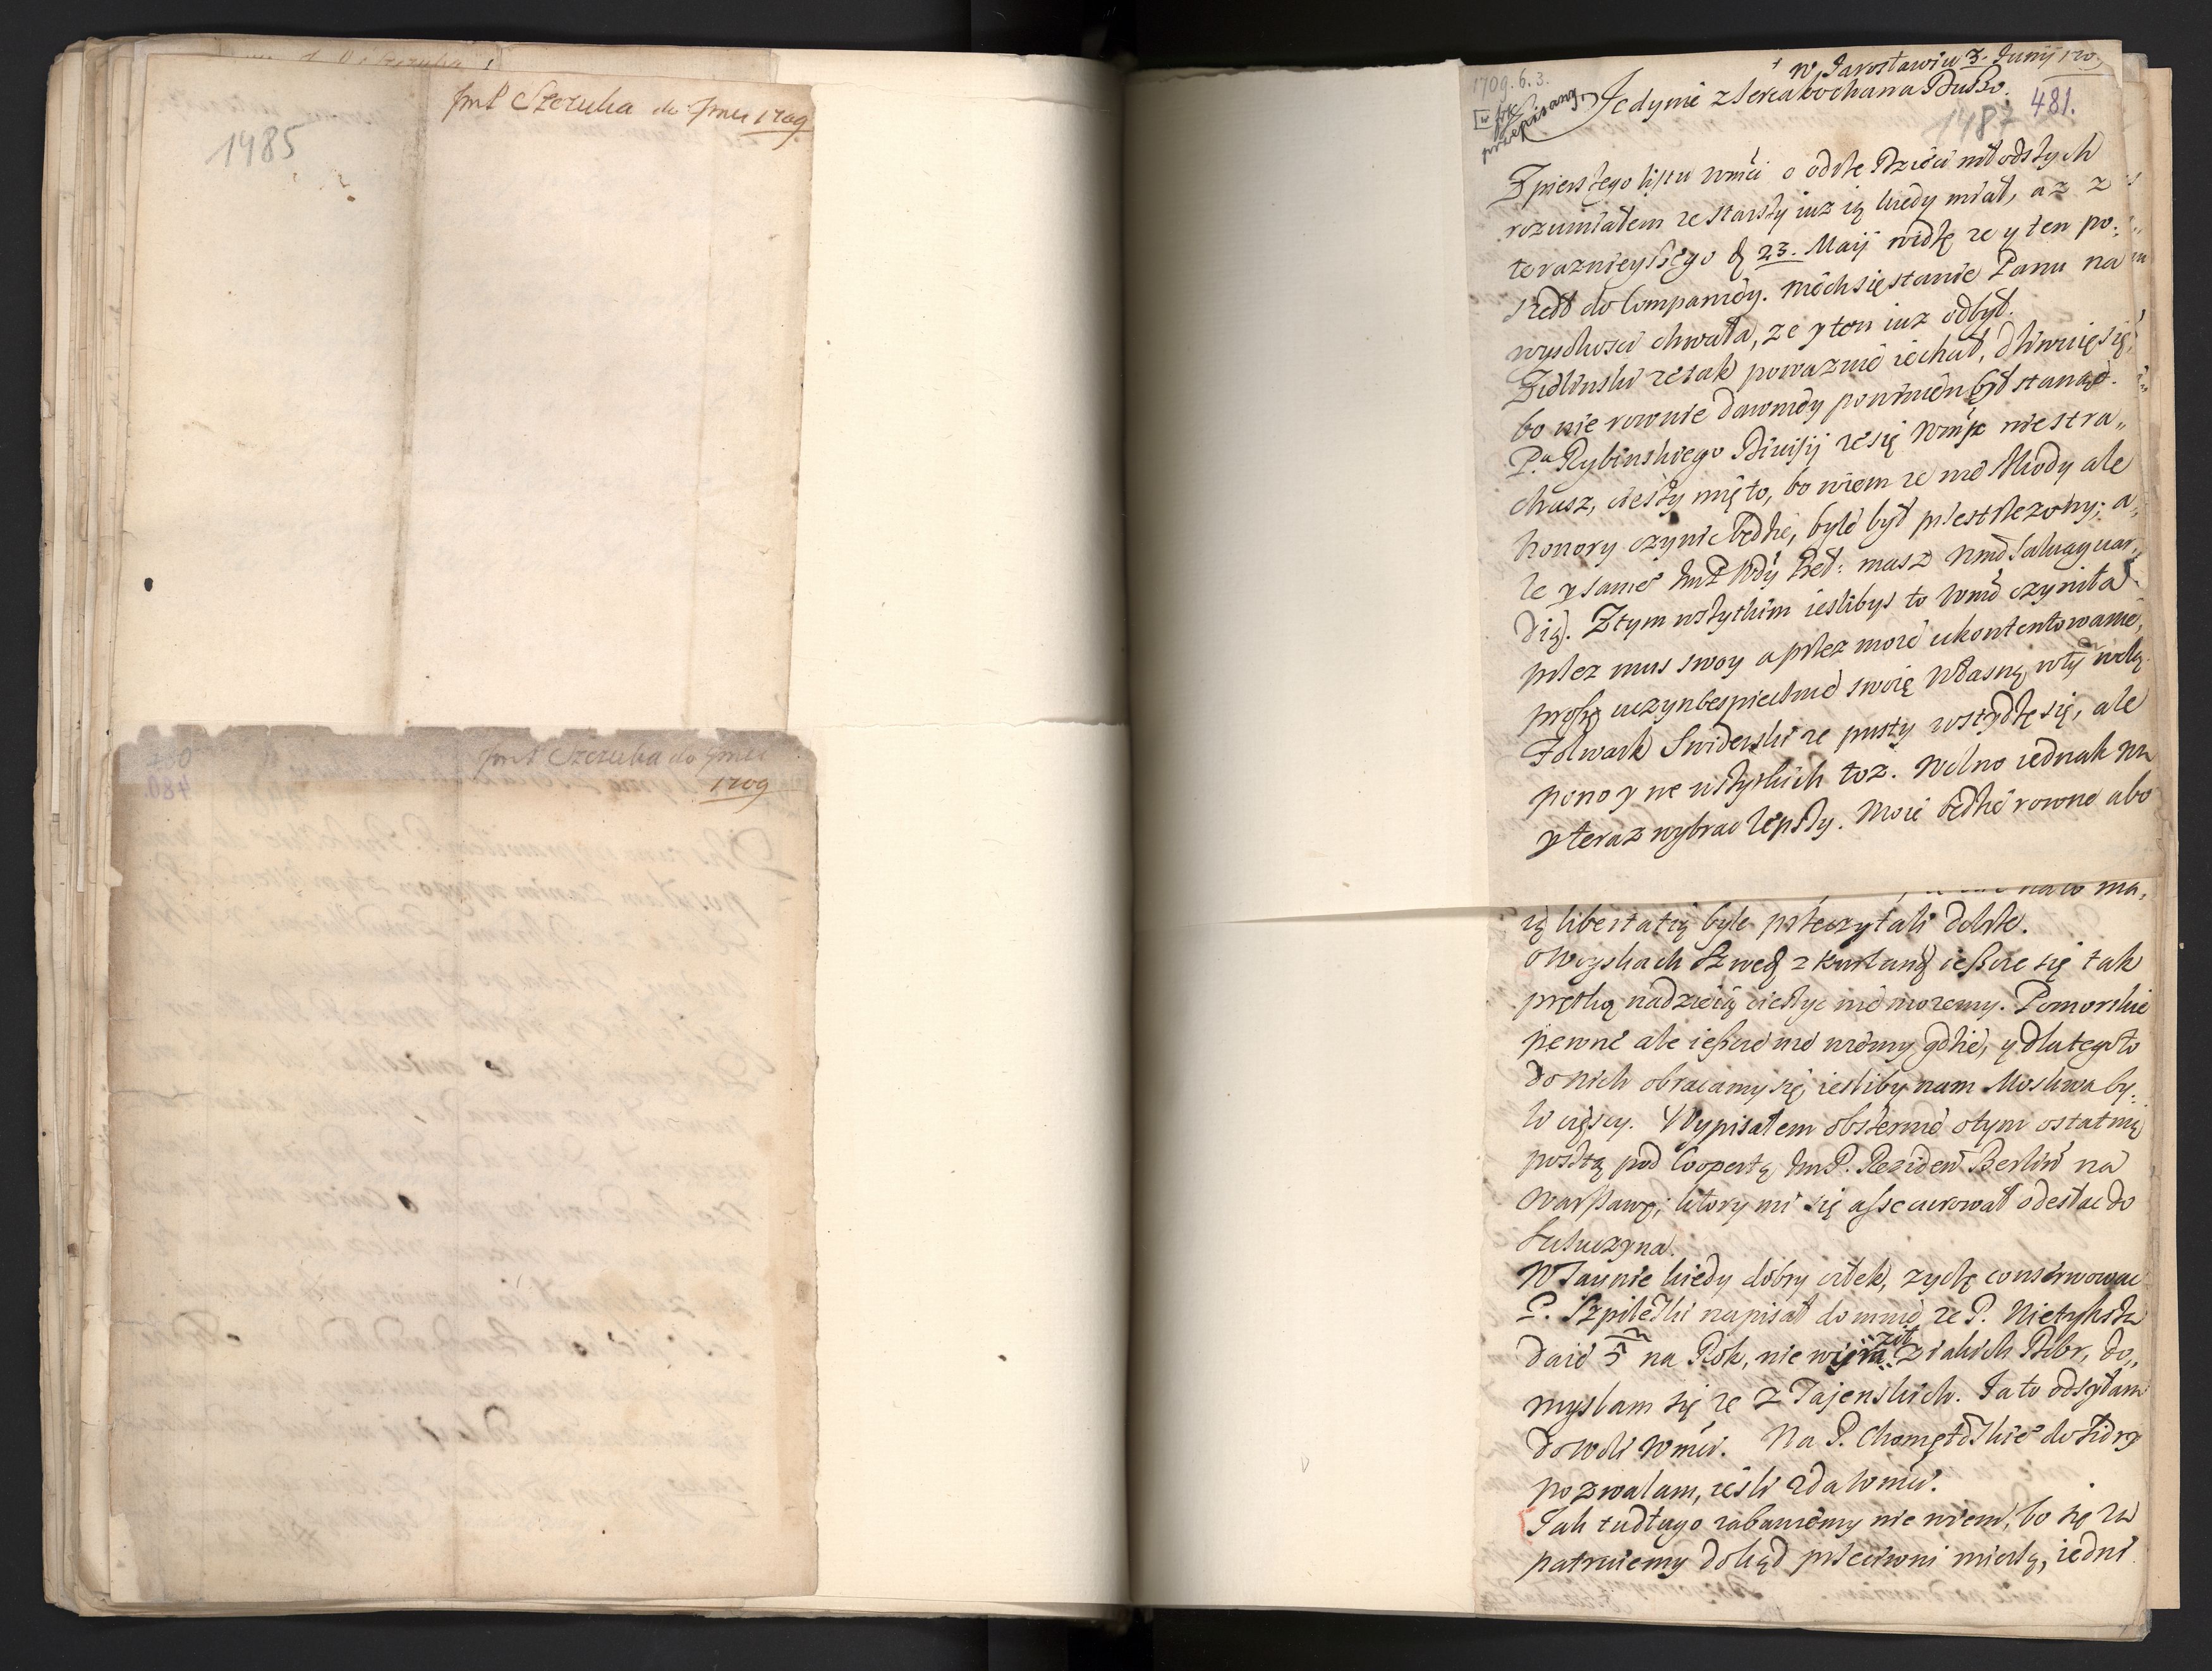 1485
JmP Szczuka do Jmci 1709
JmP Szczuka do Jmci
1709
480
1709.6.3.
przepisany
w Jarosławiu 3. Junij 170
Jedynie z serca kochana Duszo.
481.
1487
Z pierszego listu wmści o odrze Dzieci młodszych
rozumiałem ze starszy iuz ią kiedy miał, az z
teraznieyszego 23. Maij widzę ze y ten po:
szedł do Companiey. niech się stanie Panu na
wysokosci chwała, ze y ten iuz odbył.
Zidlinski ze tak powaznie iechał, dziwuię się,
bo nie rownie dawniey powinien był stanąc.
P.a Rybinskiego Diwisij ze się Wmsc nie stra„
chasz, cieszy mię to, bo wiem ze nie szkody ale
honory czynic będzie, byle był przestrzezony; a„
le y sameo JmP Wdy Beł: masz salwagwar„
dią. Z tym wszytkim iesliбys to Wmsc czyniła
przez mus swoy a przez moie ukontentowanie,
proszę uczyn bespieczne swoię własną w tym wolą.
Folwark Swiderski ze pusty wstydzę się, ale
pono y we wszytkich toz. Wolno iednak mu
y teraz wybrac lepszy. Moie będzie rowne abo
ma,
ią libertatią byle przeczytali dobrze.
O woyskach Szwedz z Kurland ieszcze się tak
prętką nadzieią cieszyc nie mozemy. Pomorskie
pewne ale ieszcze nie wiemy gdzie, y dlatego to
do nich obracamy się, iesliby nam Moskwa by„
ła cięszy. Wypisałem obszernie o tym ostatnią
posztą pod Coopertą JmP. Reziden Berlin na
Warszawę; ktory mi się assecurował odesłac do
Szczuczyna.
W Taynie kiedy dobry człek, zyczę conserwowac
P. Szpileski napisał do mnie, ze P. Nietyksza
daie 5 na Rok, nie wyraził z iakich Dobr, do„
myslam się ze z Tajenskich. Ja to odsyłam
do woli Wmsci. Na P. Chomętoskieo do Sidry
pozwalam, iesli zda Wmsci.
Jak tu długo zabawiemy nie wiem, bo się tu
patruiemy dokąd przeciwni mierzą, iedni